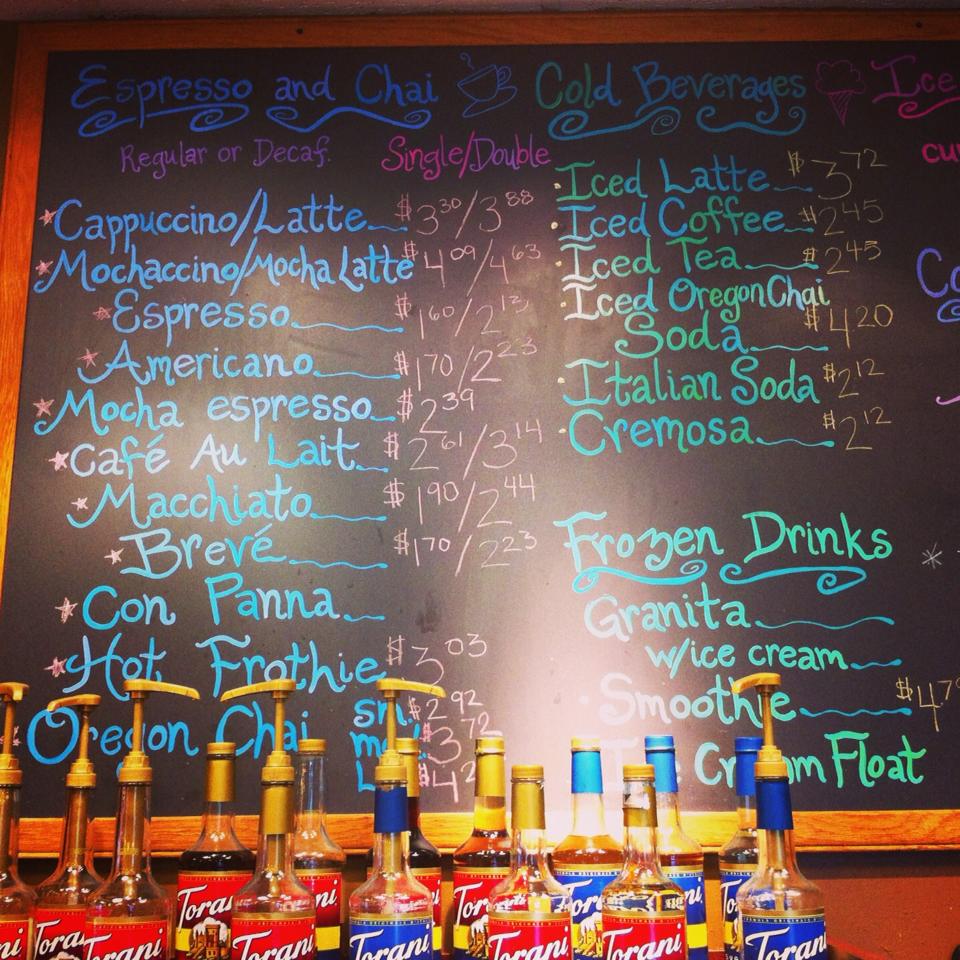 Espresso and Chai
Regular or Decaf. Single/Double
Cappuccino/Latte $3 30/3 88
Mochaccino/Mocha Latte $4 09/4 63
Espresso $1 60/2 13
Americano $1 70/2 23
Mocha espresso $2 39
Café Au Lait $2 61/3 14
Macchiato $1 90/2 44
Brevé $1 70/2 23
Con Panna
Hot Frothie $3 03
Oregon Chai sm. $2 92
$3 72
Cold Beverages
Iced Latte $3 72
Iced Coffee $2 45
Iced Tea $2 45
Iced Oregon Chai
Soda $4 20
Italian Soda $2 12
Cremosa $2 12
Frozen Drinks
Granita
w/ice cream
Smoothie
Float
Ice
Torani
Torani
Torani
Torani
Torani
Torani
Torani